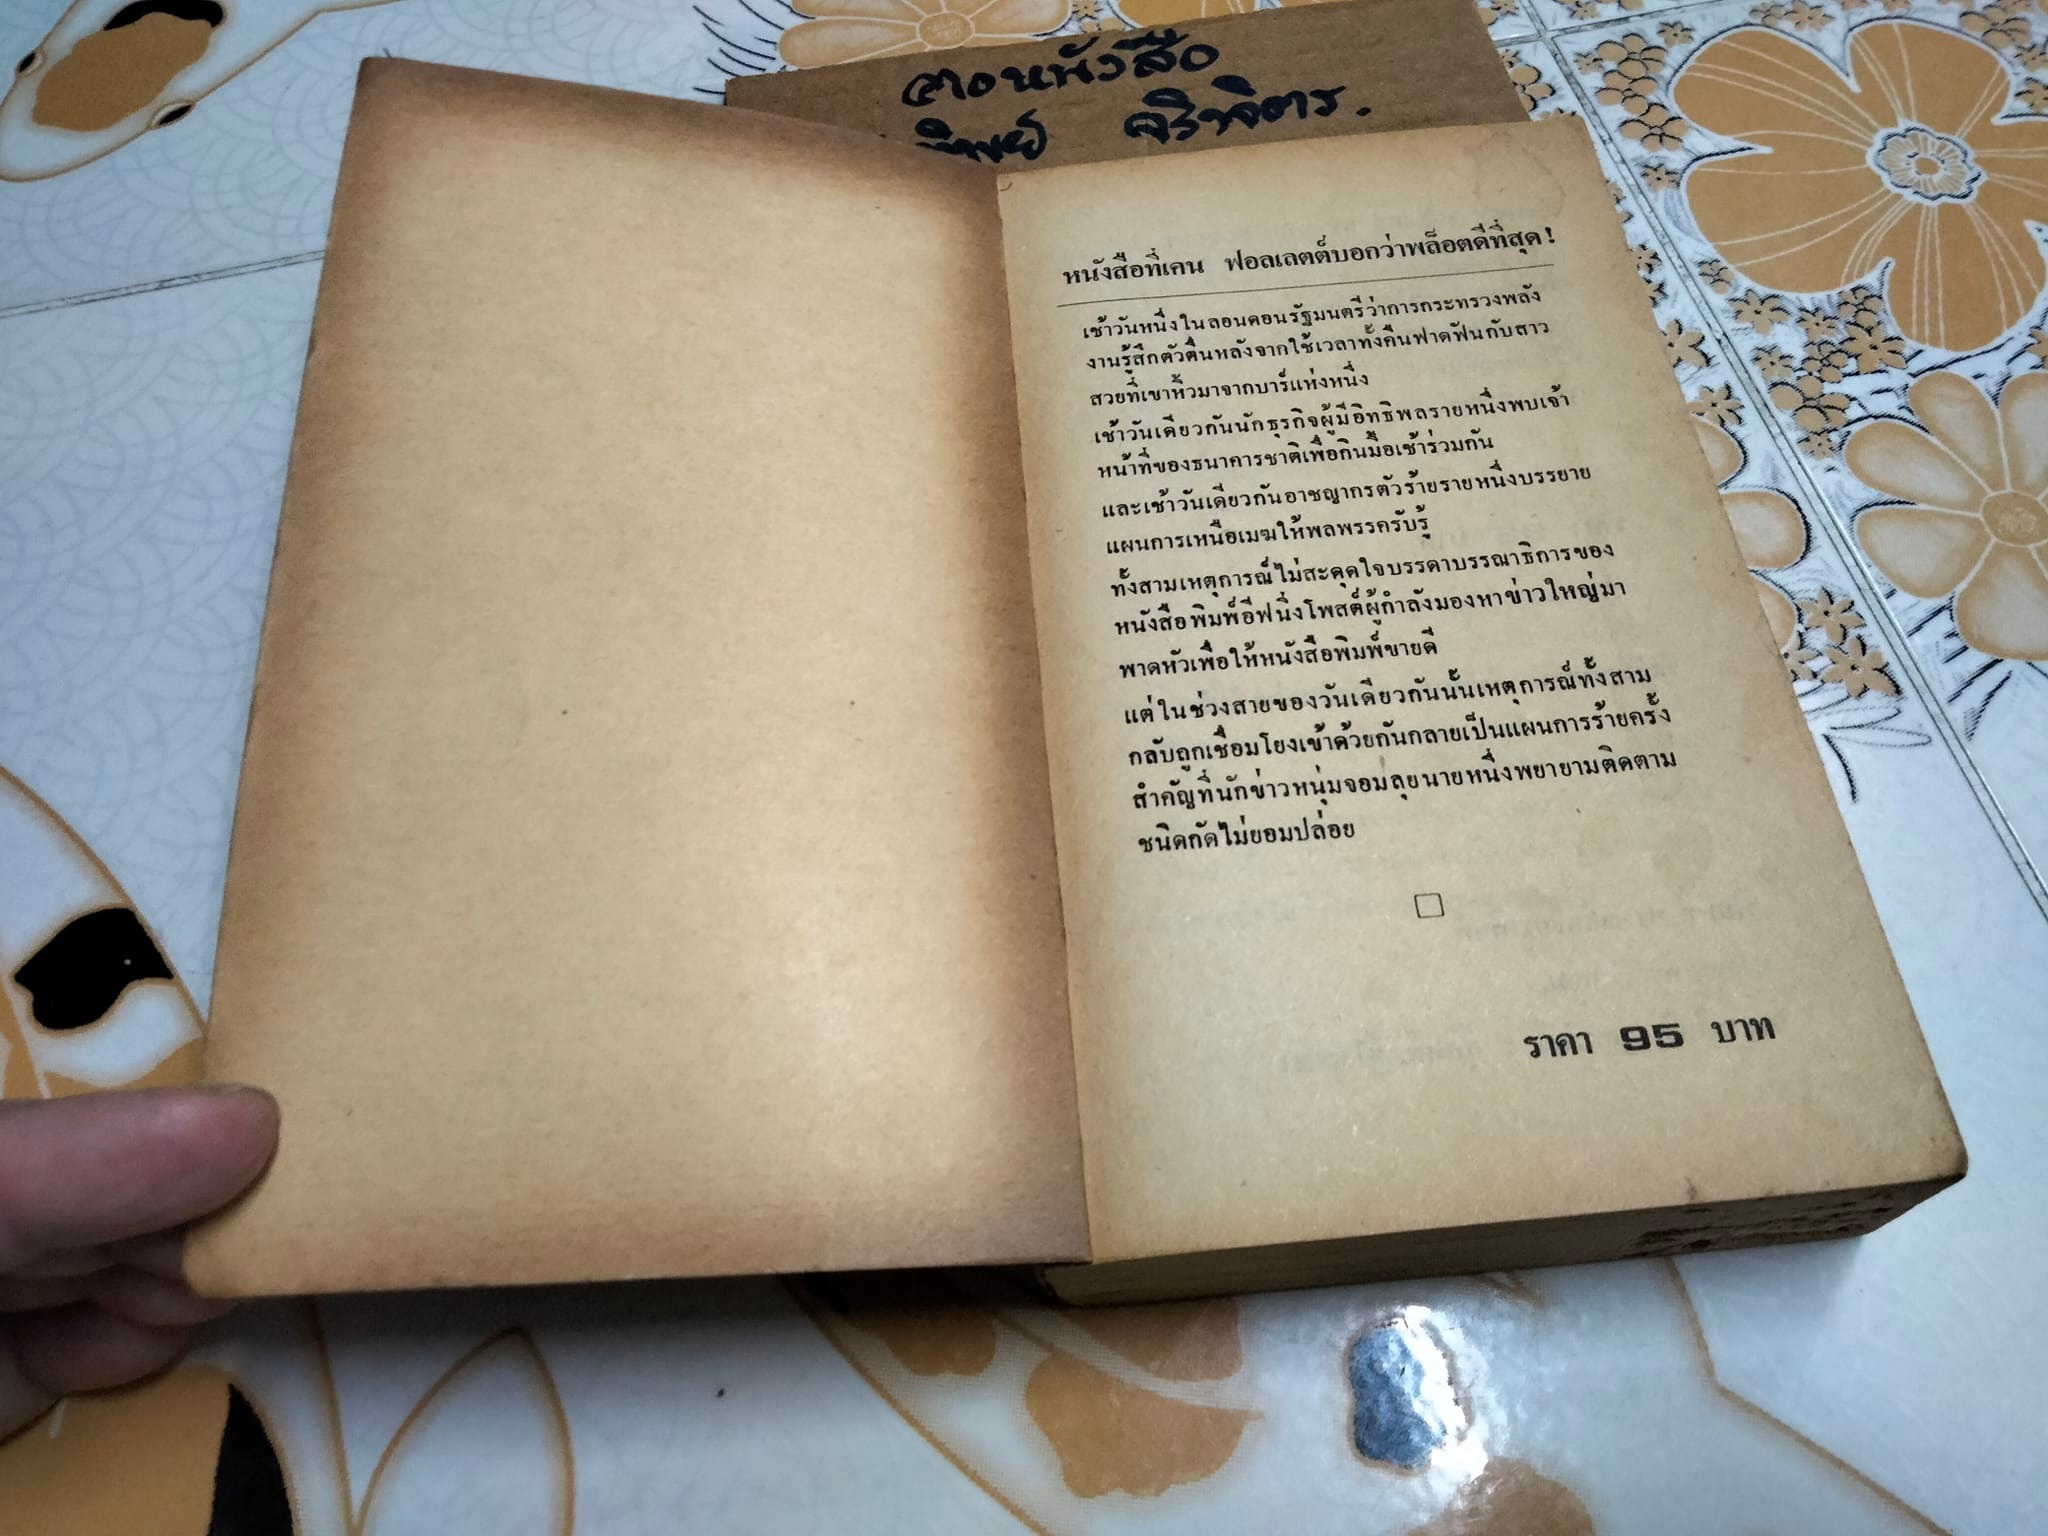 ตอหนังสือ
ทิพย์ จริจิตร.
หนังสือที่เคน ฟอลเลตต์บอกว่าพล็อตดีที่สุด!
เช้าวันหนึ่งในลอนดอนรัฐมนตรีว่าการกระทรวงพลัง
งานรู้สึกตัวตื่นหลังจากใช้เวลาทั้งคืนฟาดฟันกับสาว
สวยที่เขาหิ้วมาจากบาร์แห่งหนึ่ง
เช้าวันเดียวกันนักธุรกิจผู้มีอิทธิพลรายหนึ่งพบเจ้า
หน้าที่ของธนาคารชาติเพื่อกินมื้อเช้าร่วมกัน
และเช้าวันเดียวกันอาชญากรตัวร้ายรายหนึ่งบรรยาย
แผนการเหนือเมฆให้พลพรรครับรู้
ทั้งสามเหตุการณ์ไม่สะดุดใจบรรดาบรรณาธิการของ
หนังสือพิมพ์อีฟนิ่งโพสต์ผู้กำลังมองหาข่าวใหญ่มา
พาดหัวเพื่อให้หนังสือพิมพ์ขายดี
แต่ในช่วงสายของวันเดียวกันนั้นเหตุการณ์ทั้งสาม
กลับถูกเชื่อมโยงเข้าด้วยกันกลายเป็นแผนการร้ายครั้ง
สำคัญที่นักข่าวหนุ่มจอมลุยนายหนึ่งพยายามติดตาม
ชนิดกัดไม่ยอมปล่อย
ราคา 95 บาท